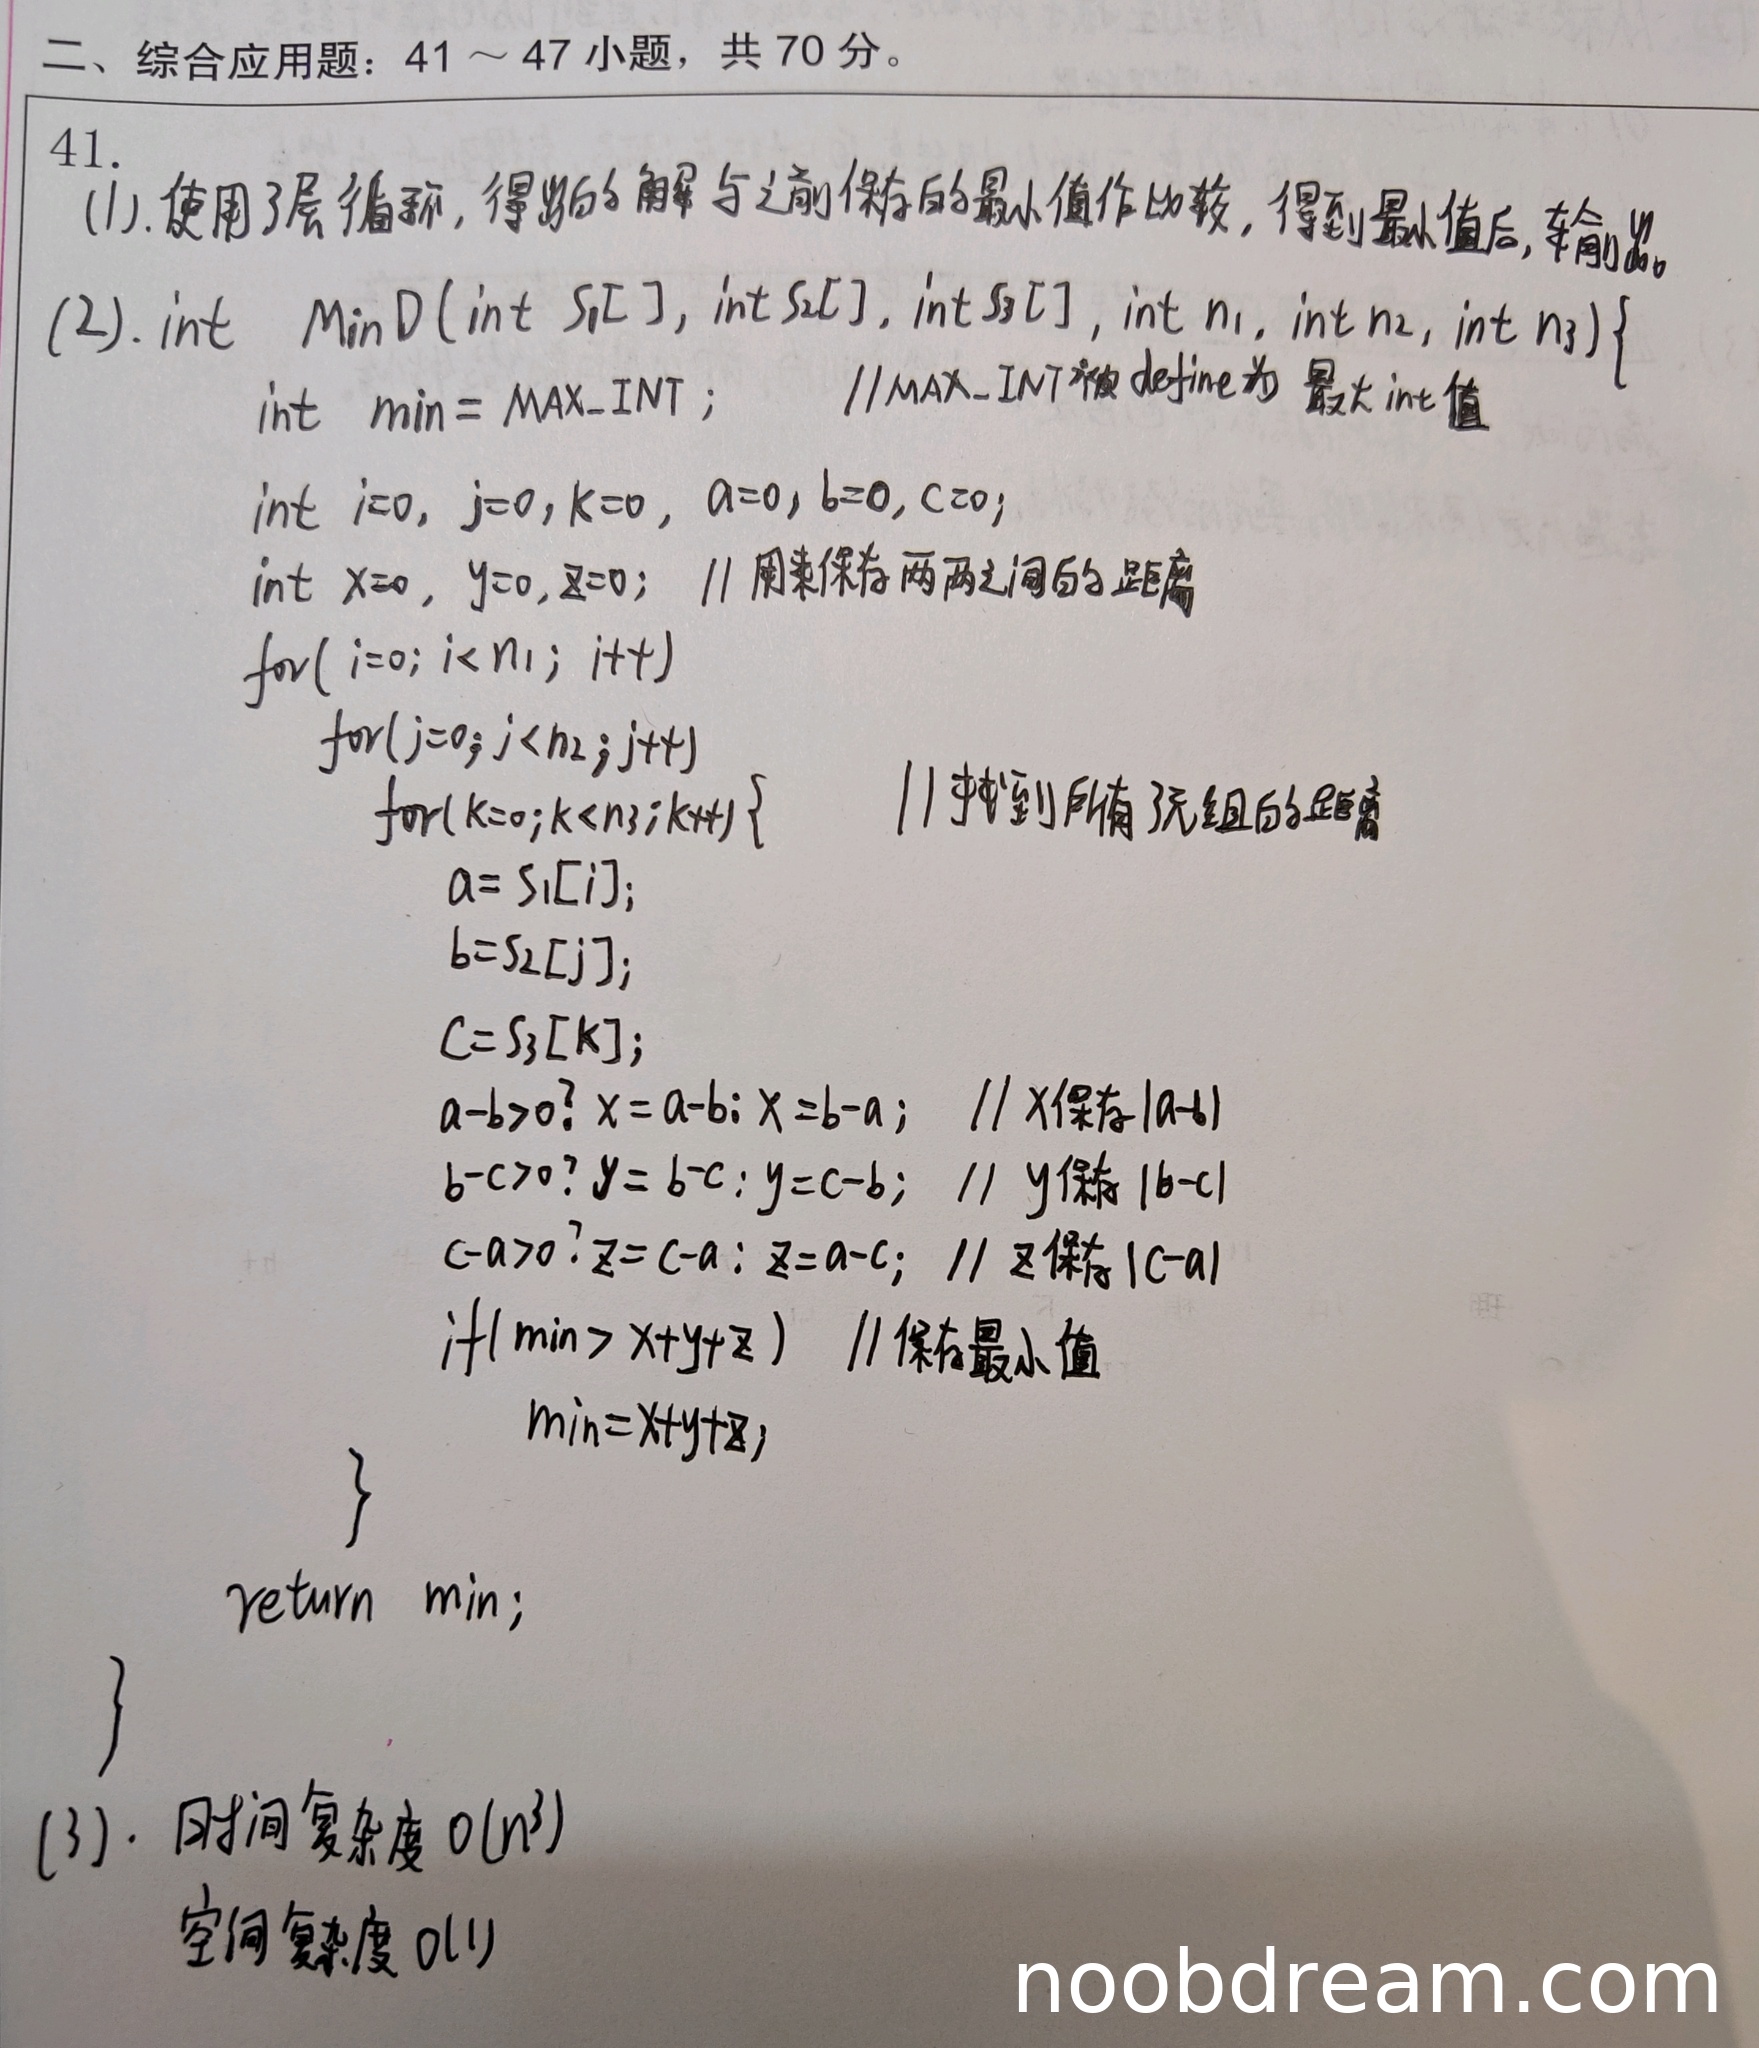 二、综合应用题：41 ～ 47 小题，共 70 分。
41.
(1). 使用3层循环, 得出的解与之前保存的最小值作比较, 得到最小值后, 输出。
(2). int MinD(int S1[], int S2[], int S3[], int n1, int n2, int n3){
int min = MAX_INT; //MAX_INT被define为 最大int值
int i=0, j=0, k=0, a=0, b=0, c=0;
int x=0, y=0, z=0; // 用来保存两两之间的距离
for( i=0; i<n1; i++)
for(j=0; j<n2; j++)
for(k=0; k<n3; k++){ // 找到所有3元组的距离
a= S1[i];
b=S2[j];
C=S3[k];
a-b>0? x=a-b: x=b-a; // x保存|a-b|
b-c>0? y=b-c: y=c-b; // y保存|b-c|
c-a>0? z=c-a: z=a-c; // z保存|c-a|
if(min> x+y+z) //保存最小值
min=x+y+z;
}
return min;
}
(3). 时间复杂度 O(n³)
空间复杂度 O(1)
noobdream.com